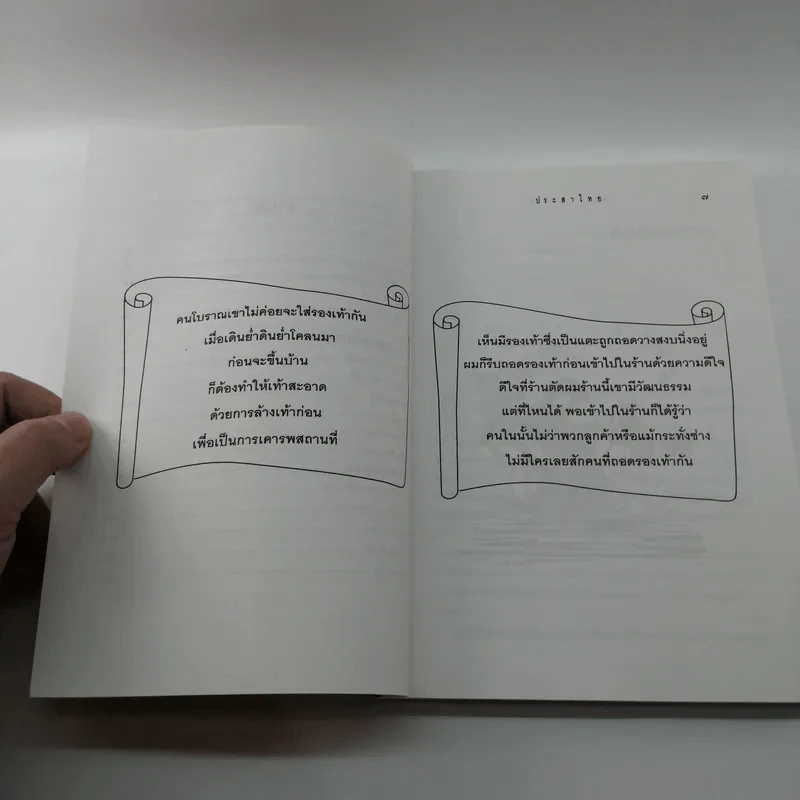 คนโบราณเขาไม่ค่อยจะใส่รองเท้ากัน
เมื่อเดินย่ำดินย่ำโคลนมา
ก่อนจะขึ้นบ้าน
ก็ต้องทำให้เท้าสะอาด
ด้วยการล้างเท้าก่อน
เพื่อเป็นการเคารพสถานที่
ประสาไทย ๗
เห็นมีรองเท้าซึ่งเป็นแตะถูกถอดวางสงบนิ่งอยู่
ผมก็รีบถอดรองเท้าก่อนเข้าไปในร้านด้วยความดีใจ
ดีใจที่ร้านตัดผมร้านนี้เขามีวัฒนธรรม
แต่ที่ไหนได้ พอเข้าไปในร้านก็ได้รู้ว่า
คนในนั้นไม่ว่าพวกลูกค้าหรือแม้กระทั่งช่าง
ไม่มีใครเลยสักคนที่ถอดรองเท้ากัน